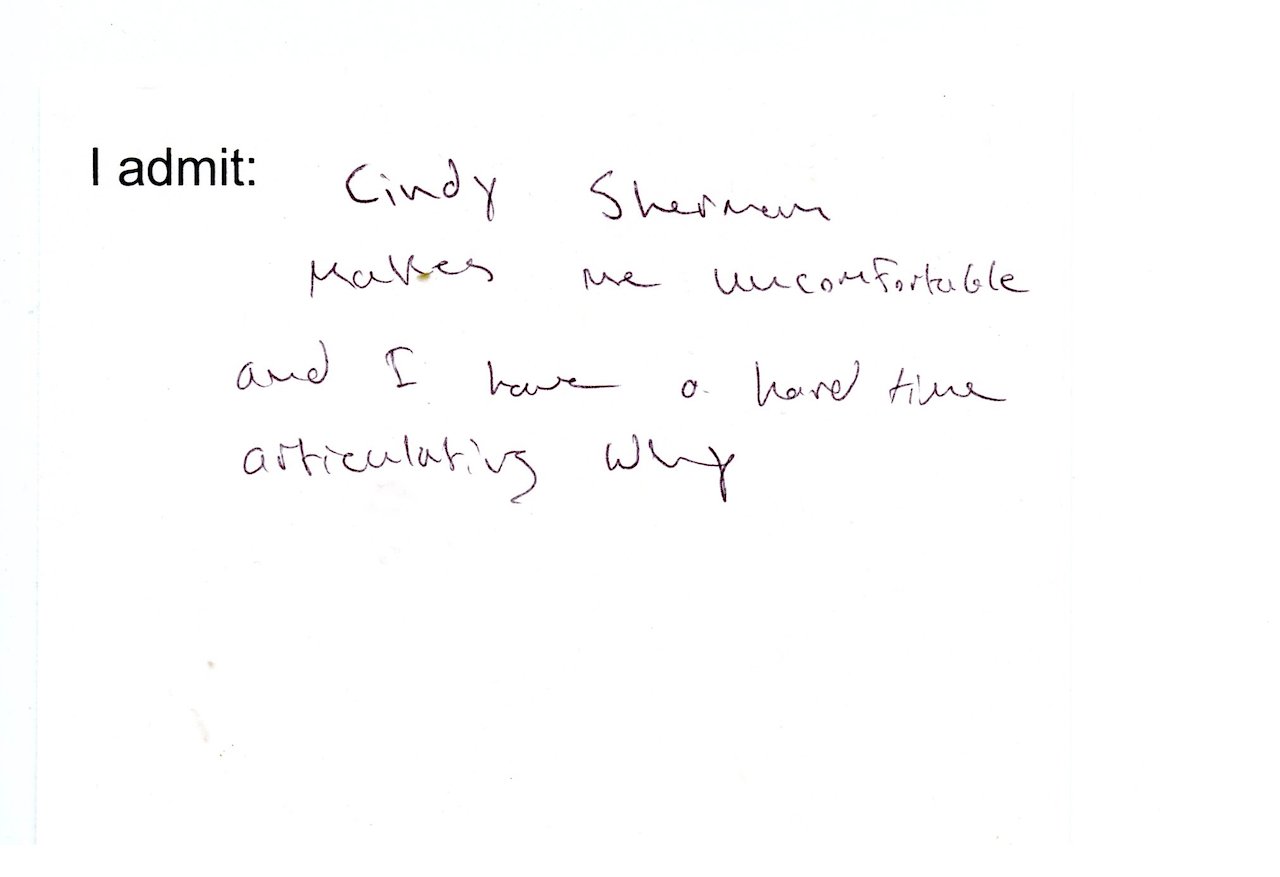 I admit: Cindy Sherman
Makes me uncomfortable
and I have a hard time
articulating why